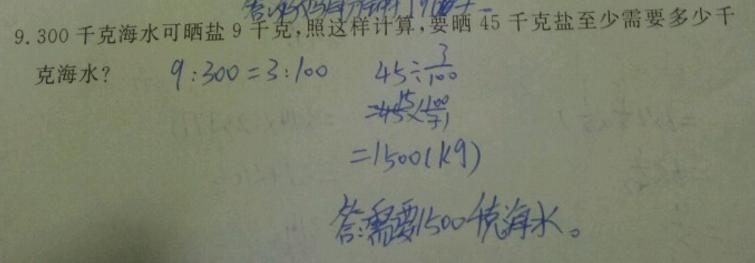 9.300 千克海水可晒盐 9 千克,照这样计算,要晒 45 千克盐至少需要多少千
克海水?
9:300=3:100
45÷3/100
=45×100/3
=1500(kg)
答:需要1500千克海水。